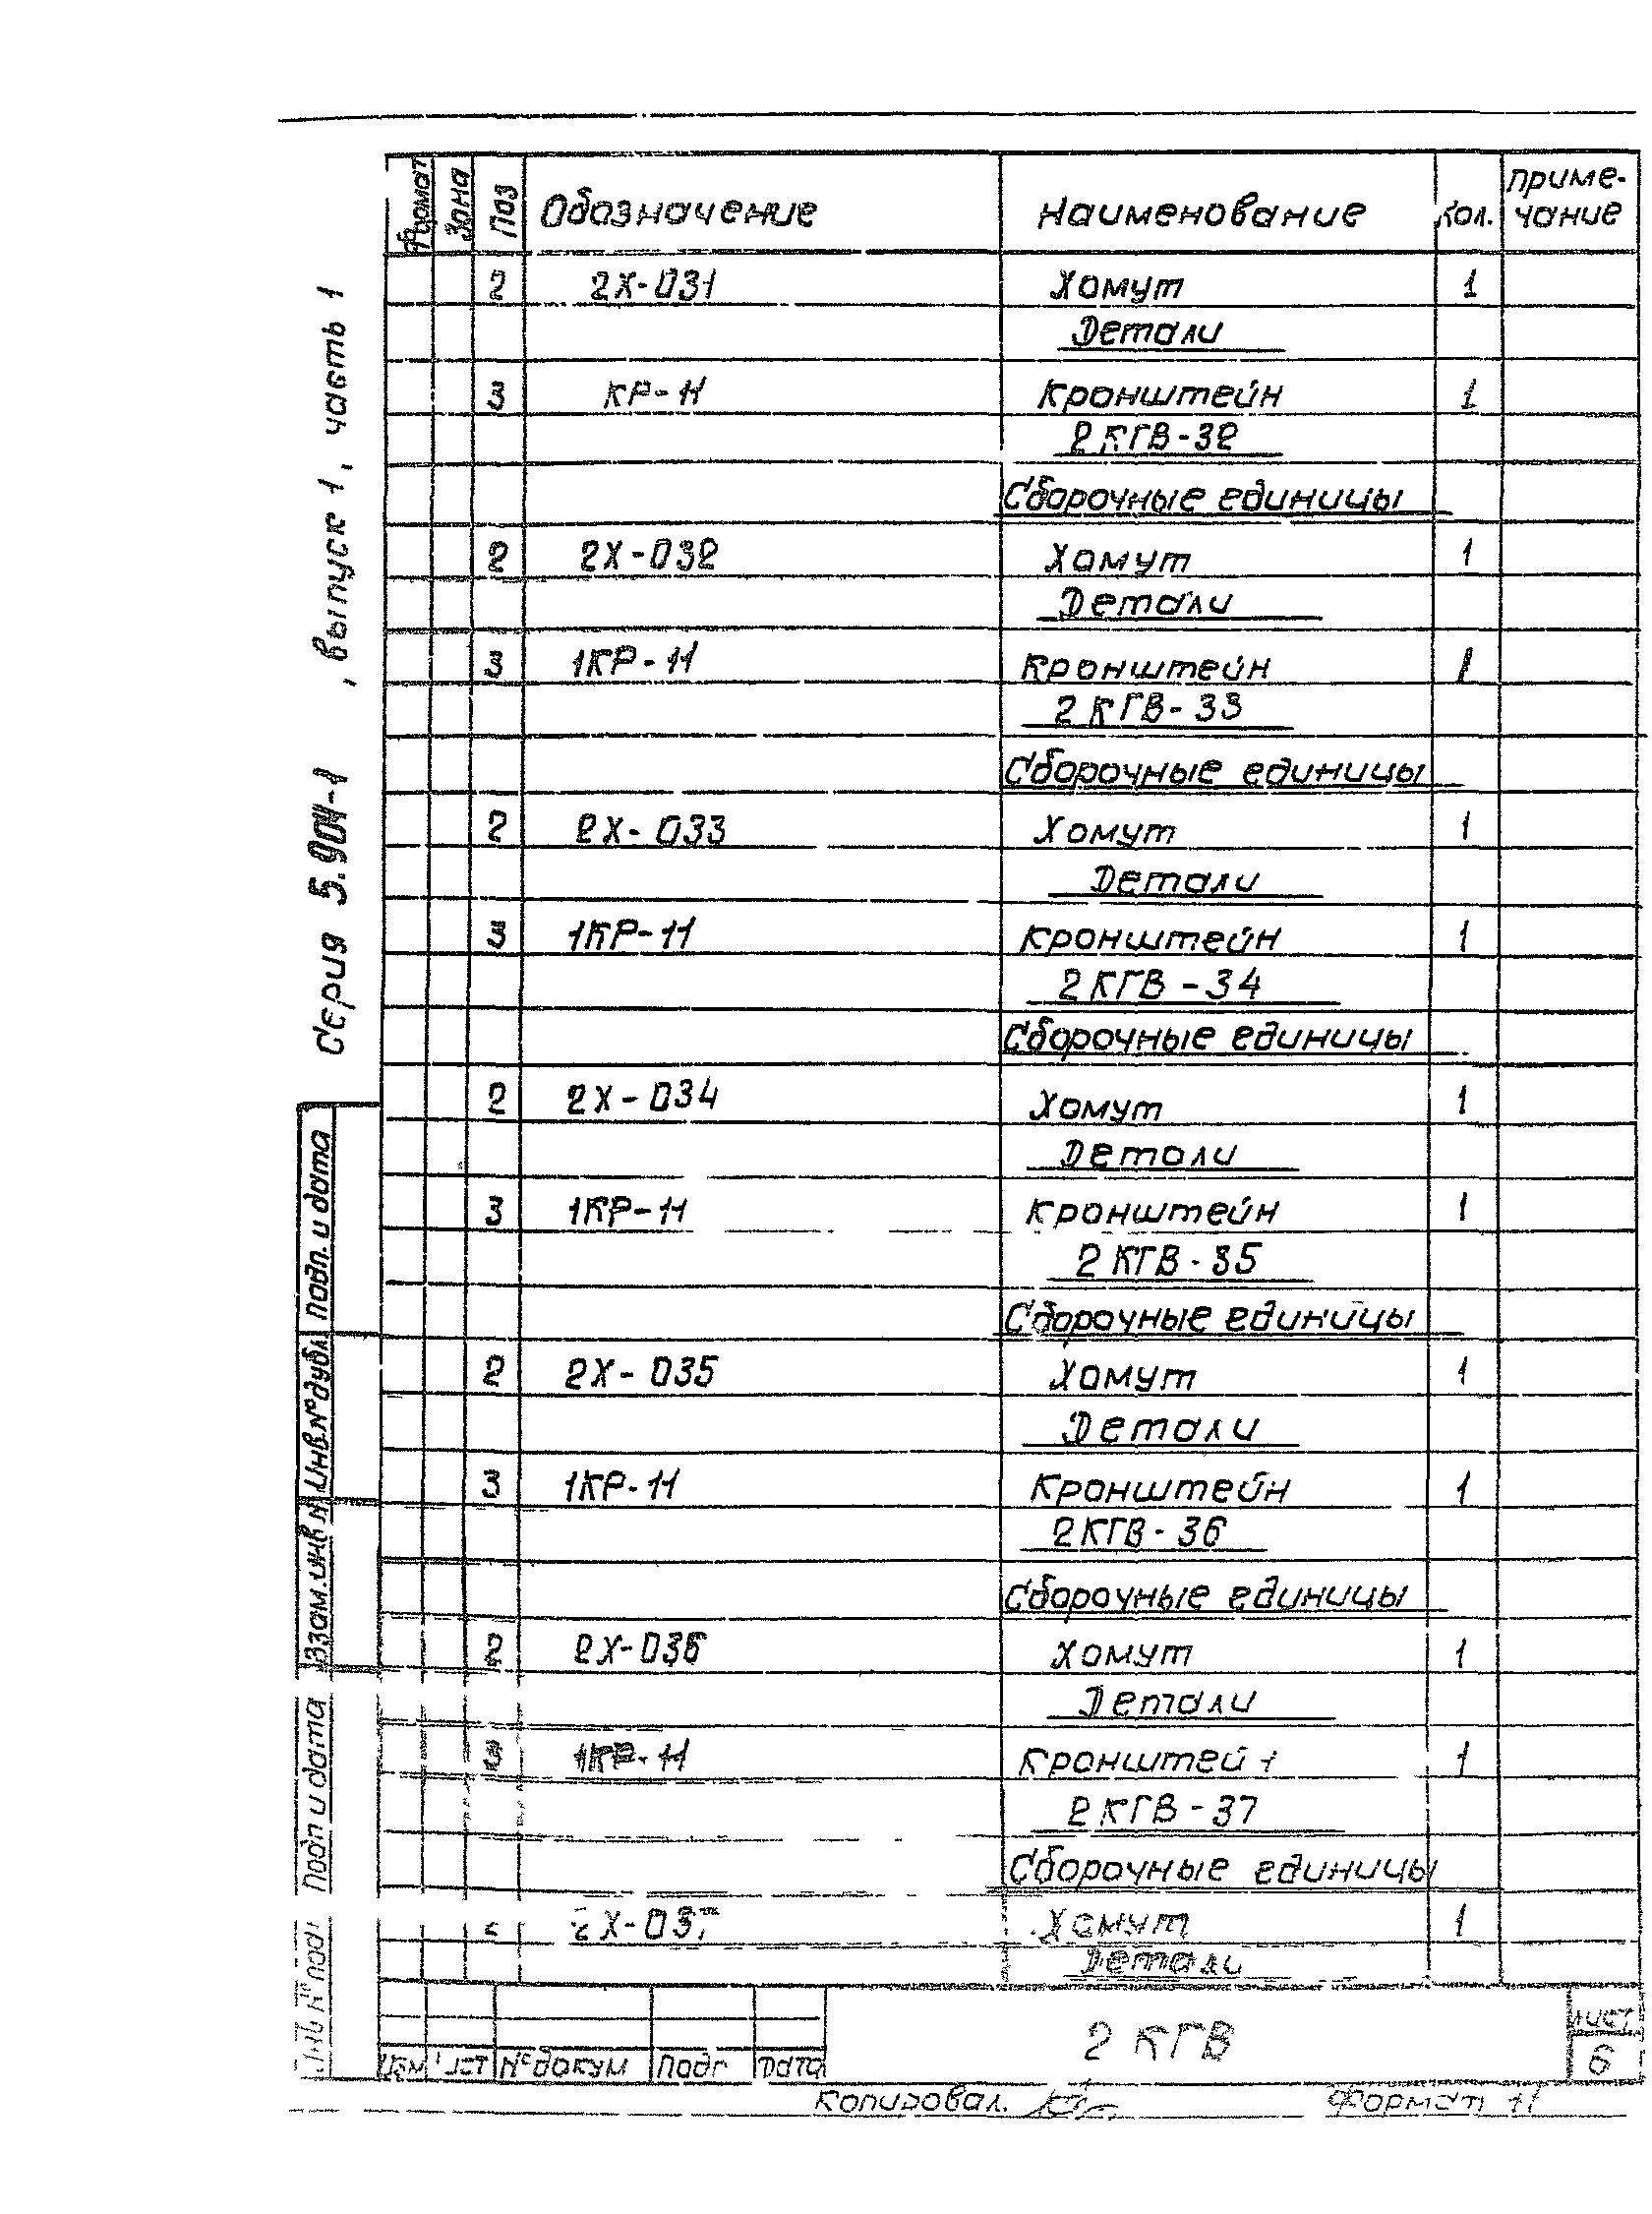 Формат Зона Поз Обозначение Наименование Кол. Приме-
чание
2 2Х-031 Хомут 1
Детали
3 КР-11 Кронштейн 1
2 КГВ-32
Сборочные единицы
2 2Х-032 Хомут 1
Детали
3 1КР-11 Кронштейн 1
2 КГВ-33
Сборочные единицы
2 2Х-033 Хомут 1
Детали
3 1КР-11 Кронштейн 1
2 КГВ-34
Сборочные единицы
2 2Х-034 Хомут 1
Детали
3 1КР-11 Кронштейн 1
2 КГВ-35
Сборочные единицы
2 2Х-035 Хомут 1
Детали
3 1КР-11 Кронштейн 1
2 КГВ-36
Сборочные единицы
2 2Х-036 Хомут 1
Детали
3 1КР-11 Кронштейн 1
2 КГВ-37
Сборочные единицы
2 2Х-037 Хомут 1
Детали
Серия 5.904-1 , выпуск 1, часть 1
Подп. и дата
Инв.№дубл.
Взам.инв №
Подп и дата
Инв № подл
Изм Лист №докум Подп Дата
2 КГВ
Лист
6
Копировал. Формат 11